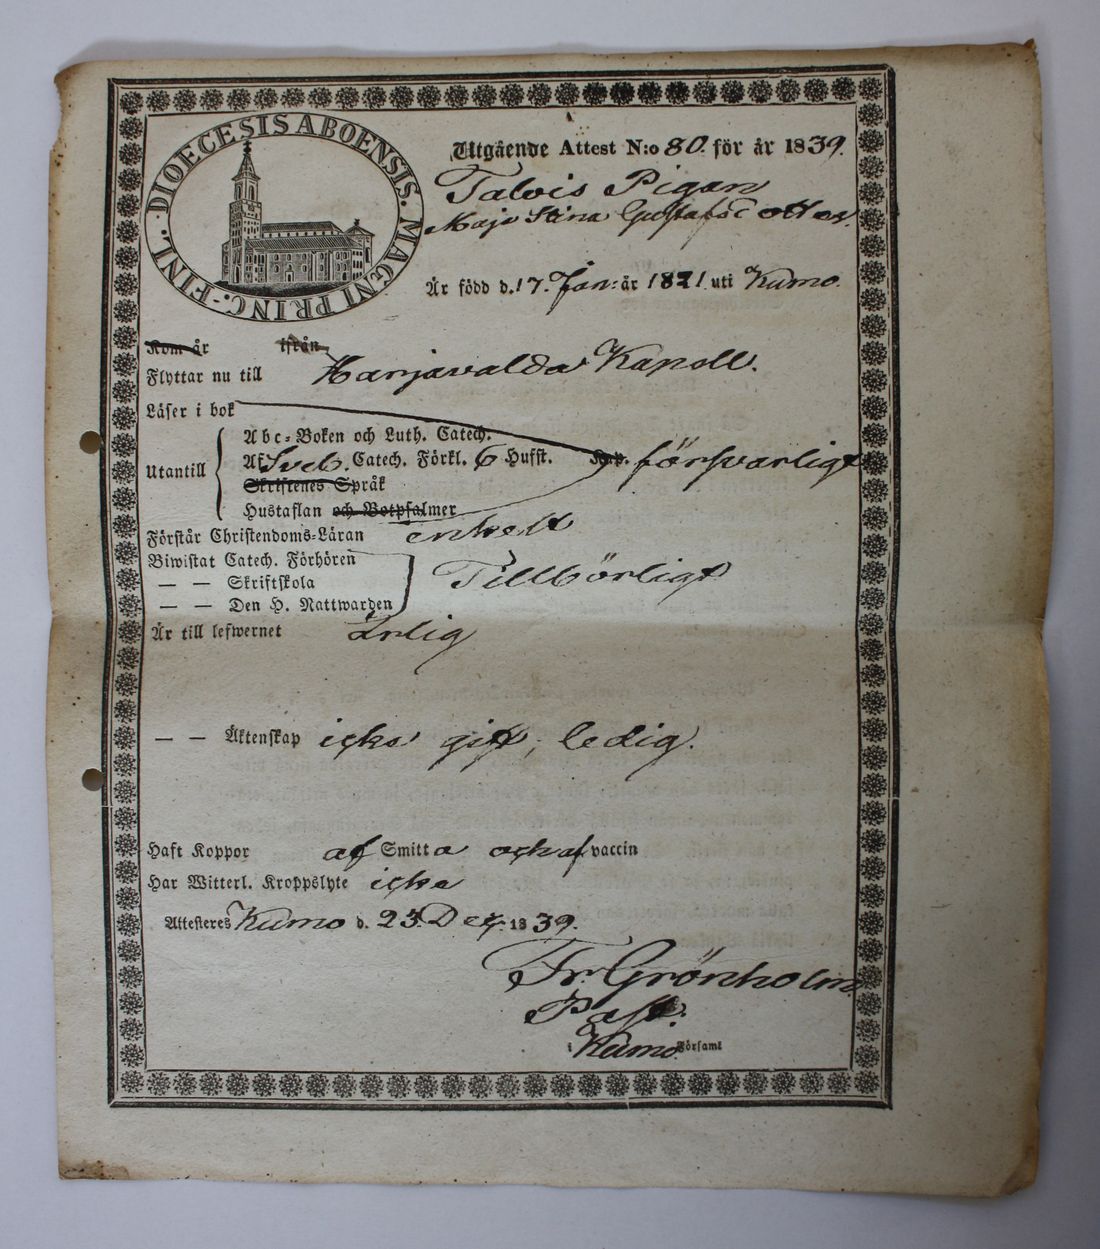 DIOECESIS ABOENSIS. MAGNI PRINC. FINL.
Utgående Attest N:o 80. för år 1839.
Talvis Pigan
Maja Stina Gustafsdotter.
Är född d. 17. Jan: år 1821 uti Kumo.
Kom år ifrån
Flyttar nu till Harjavalda Kapell.
Läser i bok
Utantill
Abc-Boken och Luth. Catech.
Af Sveb. Catech. Förkl. 6 Hufst. Kap. försvarligt
Skriftenes Språk
Hustaflan och Botpsalmer
Förstår Christendoms-Läran enkelt
Biwistat Catech. Förhören
— — Skriftskola Tillbörligt
— — Den H. Nattwarden
Är till lefwernet Ärlig
— — Äktenskap icke gift, ledig.
Haft Koppor af Smitta och af vaccin
Har Witterl. Kroppslyte icke
Attesteres Kumo d. 23. Dec. 1839.
Fr. Grönholm
Past.
i Kumo Församl